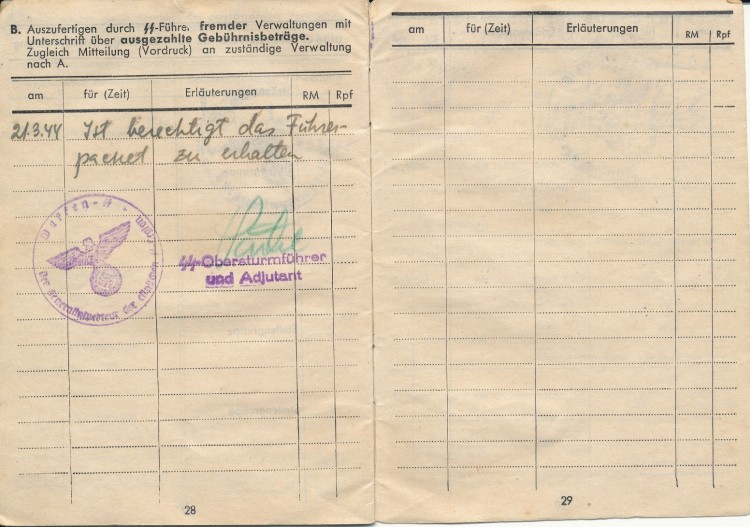 B. Auszufertigen durch ᛋᛋ-Führe. fremder Verwaltungen mit
Unterschrift über ausgezahlte Gebührnisbeträge.
Zugleich Mitteilung (Vordruck) an zuständige Verwaltung
nach A.
am für (Zeit) Erläuterungen RM Rpf
21.3.44 Ist berechtigt das Führer-
packet zu erhalten
Waffen-ᛋᛋ
ᛋᛋ-Obersturmführer
und Adjutant
28
am für (Zeit) Erläuterungen RM Rpf
29